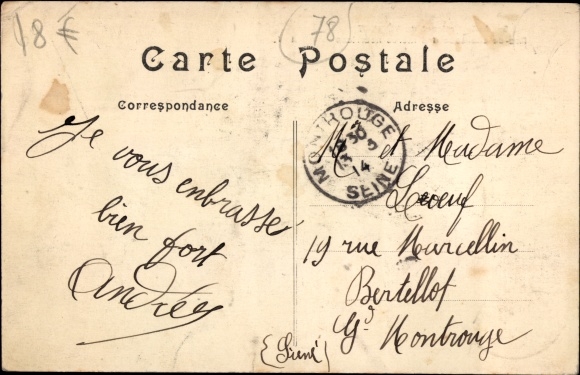 18 €
(78)
Carte Postale
Correspondance
Adresse
Je vous enbrasse
bien fort
Andrée
MONTROUGE
30
13
14
SEINE
Mr et Madame
Leoeuf
19 rue Marcellin
Bertellot
Gd Montrouge
(Seine)